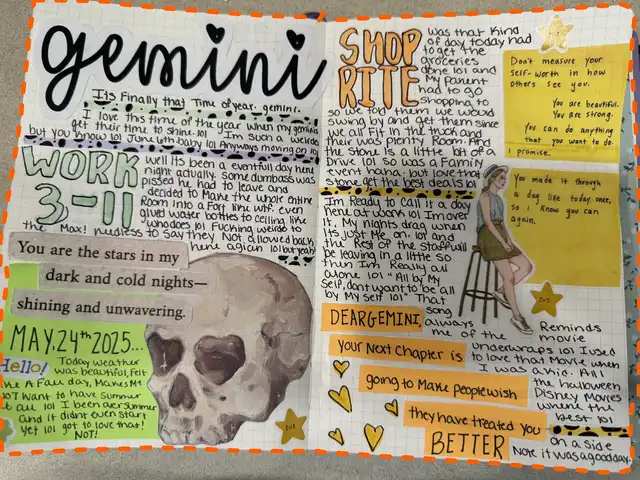 gemini
Its Finally that Time of year. gemini.
I love this time of the year when my geminis
get their time to shine. lol Im such a weirdo
but you know lol June 16th baby lol Anyways moving on lol
WORK
3-11
well its been a eventful day here
night actually. Some dumbass was
pissed he had to leave and
decided to Make the whole entire
Room into a Fort like WTF. even
glued water bottles to ceiling like
who does lol Fucking weirdo to
the Max! needless to say they Not allowed back
here again lol but yeah
You are the stars in my
dark and cold nights—
shining and unwavering.
MAY.24th 2025...
Hello!
Today weather
was beautiful, Felt
like A Fall day, Makes Me
lol want to have summer
it all lol I been over summer
and it didnt even start
yet lol got to love that!
NOT!
SHOP
RITE
was that kind
of day today had
to get the
groceries
done lol and
My Parent
had to go
shopping to
so we told them we would
swing by and get them since
we all Fit in the truck and
their was plenty Room. And
the Store is a little bit of a
Drive lol so was a Family
event haha. but love that
store get the best deals lol
Im Ready to Call it a day
here at work lol Im over
it. My nights drag when
its Just Me on. lol and
the Rest of the staff will
be leaving in a little so
then Im Really all
alone lol "All by My
self, dont want to be
all by My self lol" That
song
always
Reminds
me of the
movie
underwraps lol I used
to love that Movie when
I was a kid. All
the halloween
Disney Movies
where the
best lol
on a side
Note it was a good day.
DEAR GEMINI,
your Next Chapter is
going to Make people wish
they have treated you
BETTER
Don't measure your
self-worth in how
others see you.
You are beautiful.
You are strong.
You can do anything
that you want to do.
I promise.
You made it through
a day like today once,
so i know you can
again.